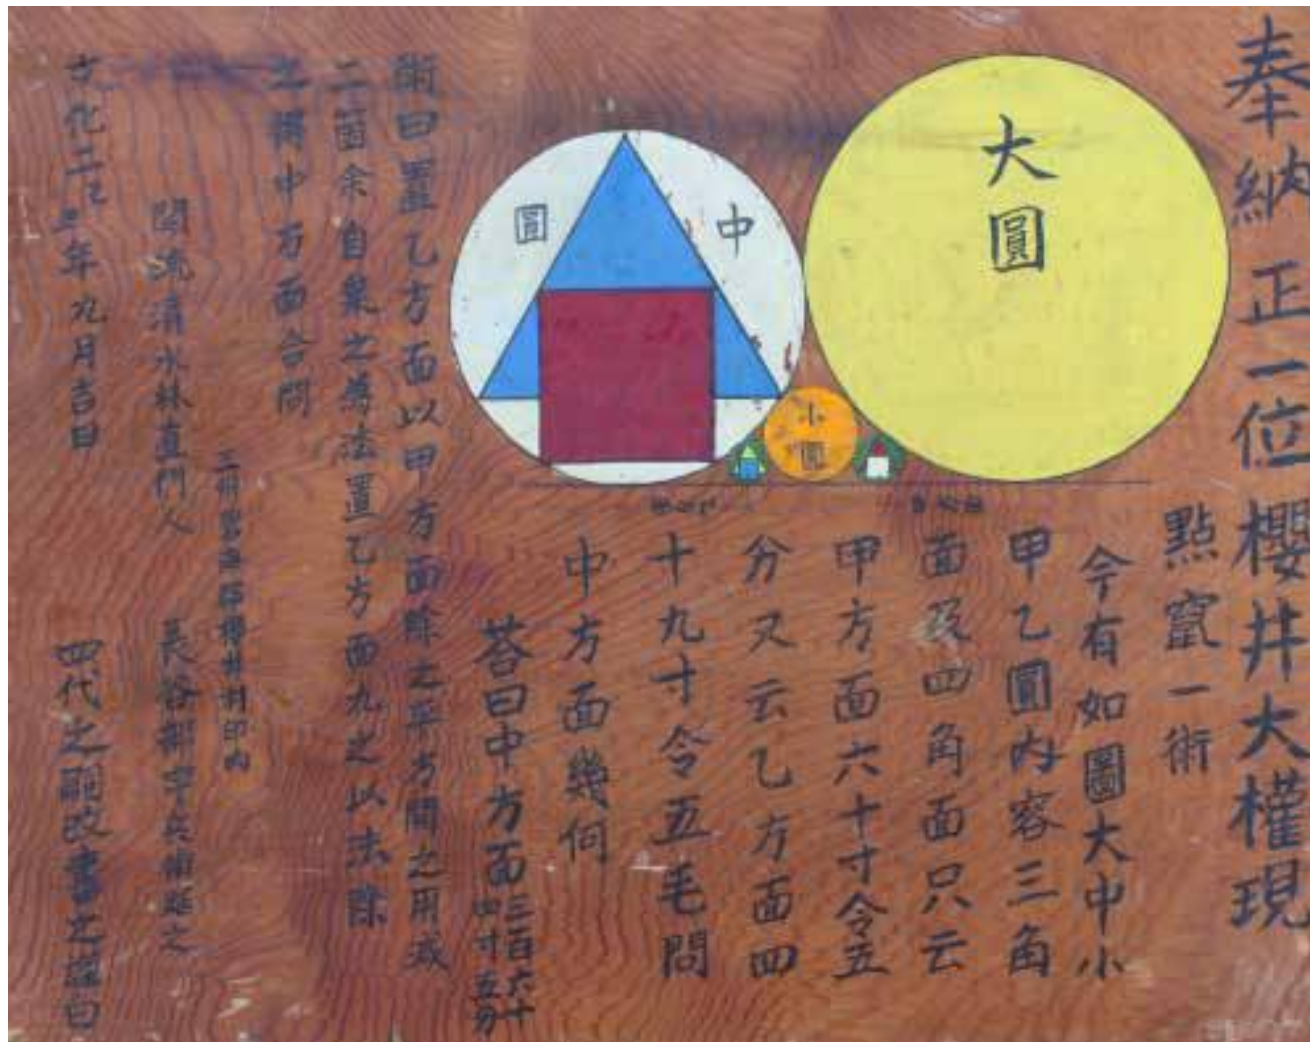 奉納 正一位櫻井大權現
點竄一術
今有如圖大中小
甲乙圓内容三角
面及四角面只云
甲方面六十寸令五
分又云乙方面四
十九寸令五毛問
中方面幾何
答曰中方面三百六十四寸五分
術曰置乙方面以甲方面除之平方開之用減
二箇余自乗之為法置乙方面九之以法除
之得中方面合問
關流清水林直門人
長谷部
文化二乙丑年九月吉日
四代之嗣改書之
大圓
中圓
小圓